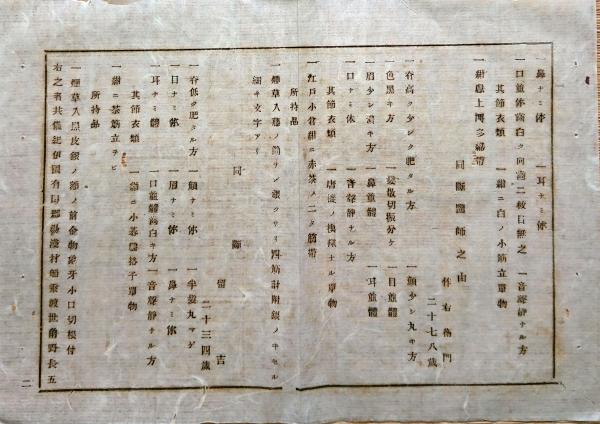 鼻ナミ体 一耳ナミ体
一口並体齒白ク向齒二枚目無之 一音聲静ナル方
其節衣類 一紺ニ白ノ小筋立單物
一紺献上博多縞帯
同断醫師之由
右衛門
二十七八歳
一脊高ク少シク肥タル方 一顔少シ丸キ方
一色黒キ方 一髪散切振分ケ 一目並體
一眉少シ濃キ方 一鼻並體 一耳並體
一口ナミ体 一音聲静ナル方
其節衣類 一唐桟ノ浅黄ナル單物
一江戸小倉紺ニ赤茶ノ二タ筋帯
所持品
一煙草入 銀クサリ四筋計附銀ノキセル
細キ文字アリ
同 斷
留吉
二十三四歳
一脊低ク肥タル方 一顔ナミ体 一半髪丸マゲ
一目ナミ体 一眉ナミ体 一鼻ナミ体
一耳ナミ體 一口並體齒白キ方 一音聲静ナル方
其節衣類 一紺ニ小碁盤格子單物
一紺ニ茶筋立ヲビ
所持品
一煙草入黒皮銀ノ額ノ前金物象牙小口切根付
右之者共儀紀伊國有田郡
二